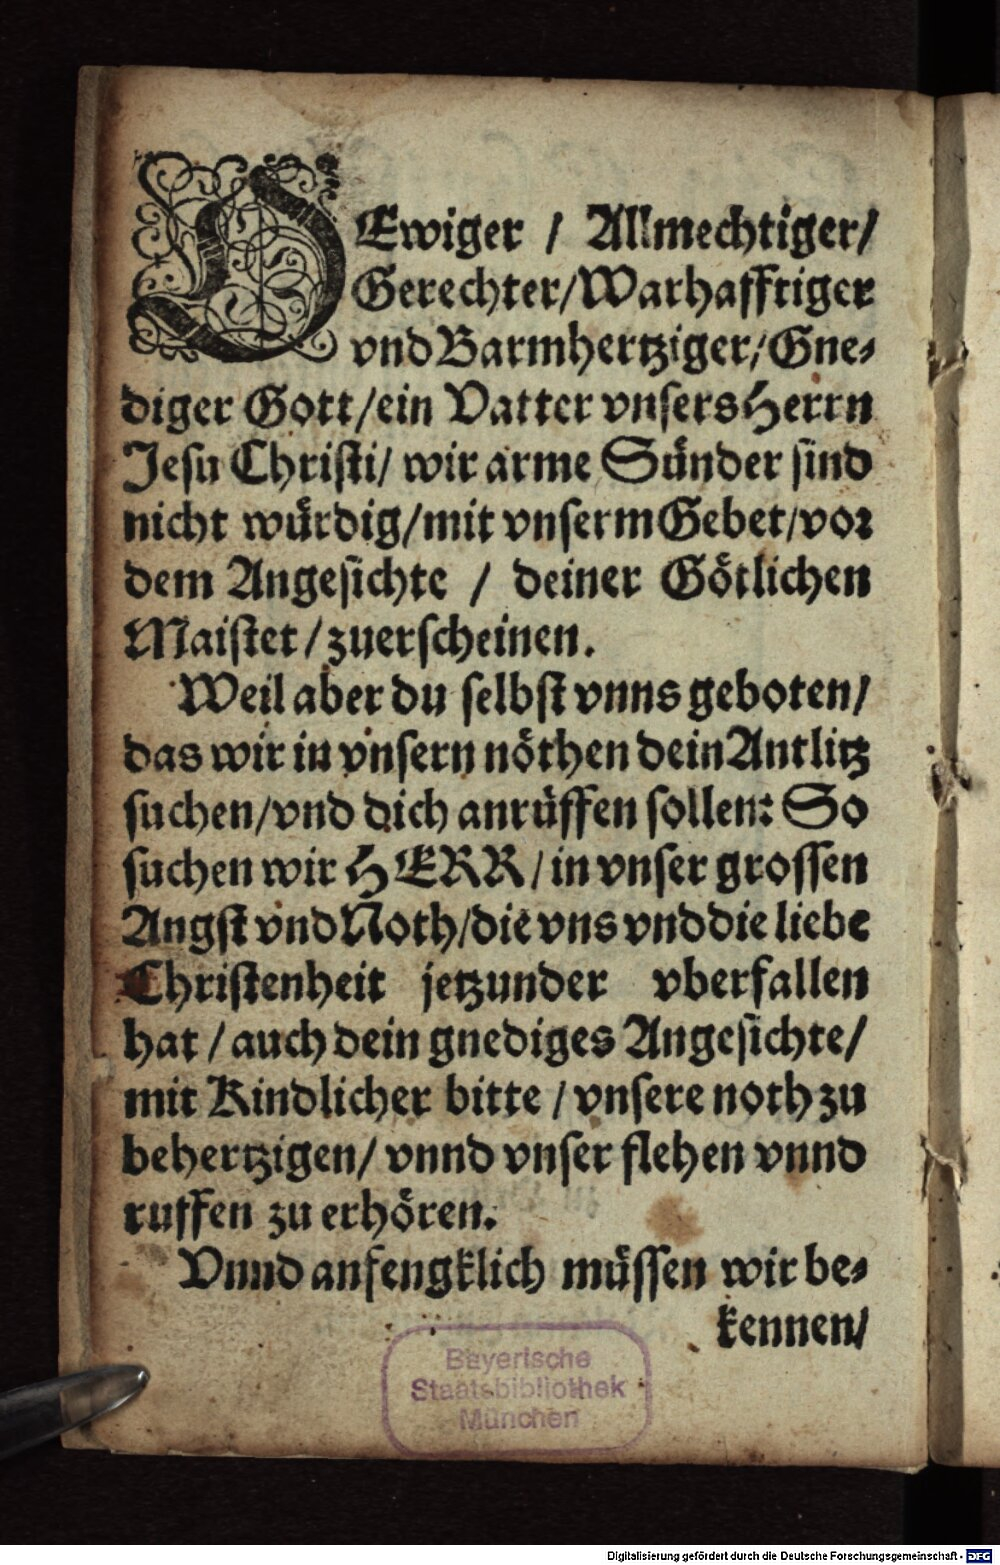 O Ewiger / Allmechtiger/
Gerechter/Warhafftiger
vnd Barmhertziger/Gne-
diger Gott/ein Vatter vnsers Herrn
Jesu Christi/ wir arme Sünder sind
nicht würdig/mit vnserm Gebet/vor
dem Angesichte / deiner Götlichen
Maistet/zuerscheinen.
Weil aber du selbst vnns geboten/
das wir in vnsern nöthen dein Antlitz
suchen/vnd dich anrüffen sollen: So
suchen wir HERR/in vnser grossen
Angst vnd Noth/die vns vnd die liebe
Christenheit jetzunder vberfallen
hat / auch dein gnediges Angesichte/
mit Kindlicher bitte / vnsere noth zu
behertzigen/ vnnd vnser flehen vnnd
ruffen zu erhören.
Vnnd anfengklich müssen wir be-
kennen/
Bayerische
Staatsbibliothek
München
Digitalisierung gefördert durch die Deutsche Forschungsgemeinschaft - DFG